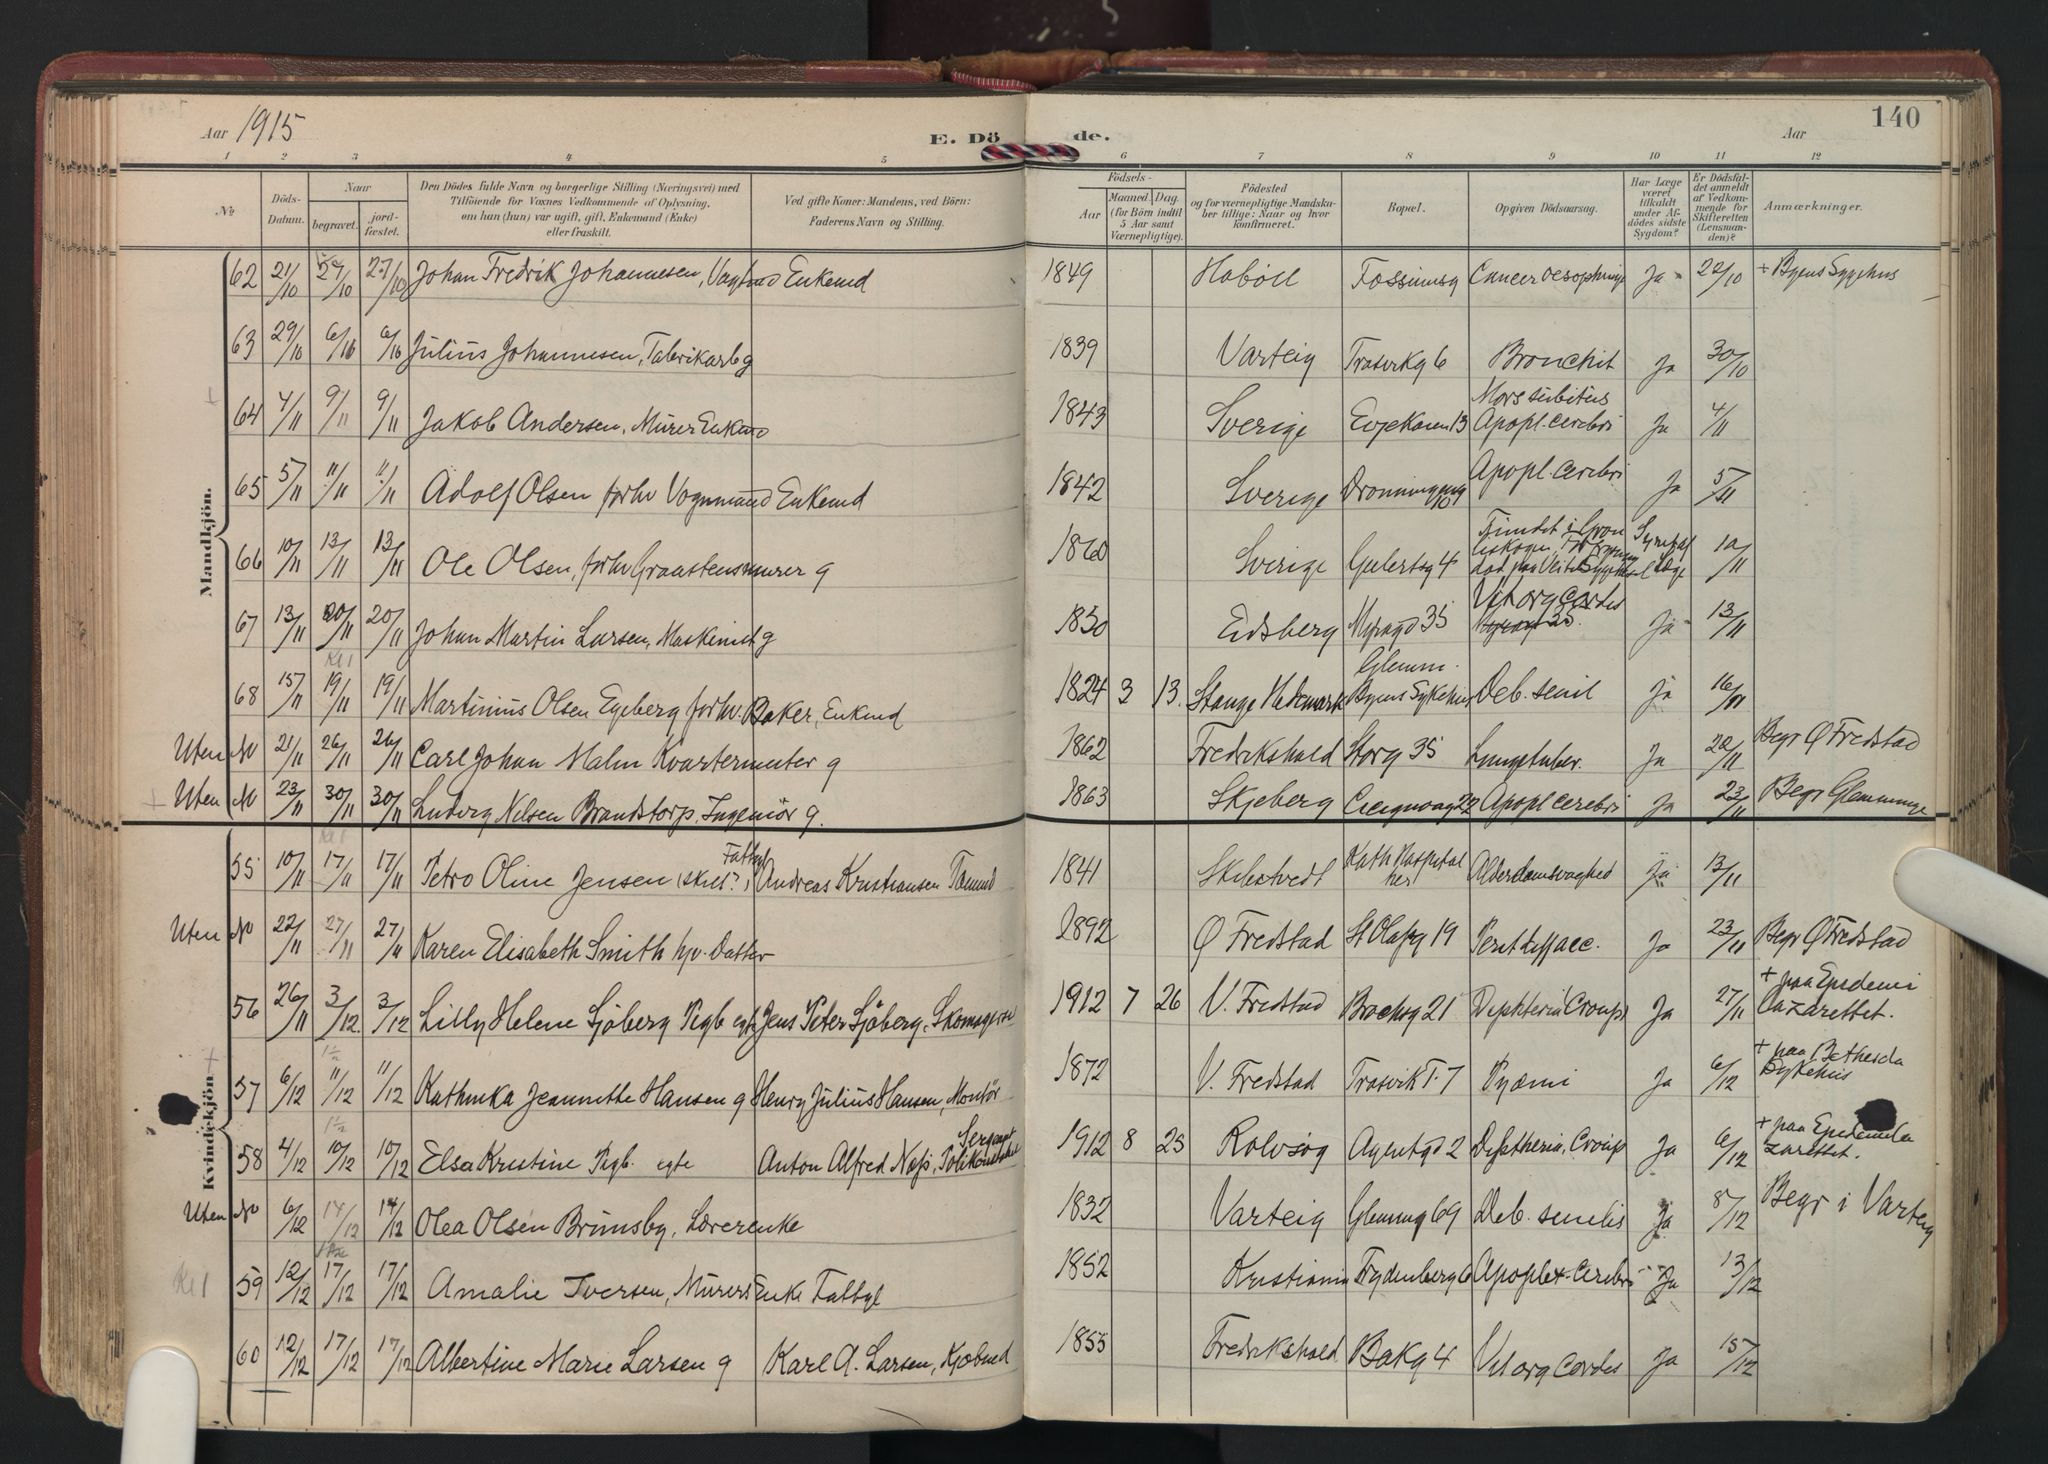 140
Aar 1915
E. Dö de.
Aar
1 2 3 4 5 6 7 8 9 10 11 12
№
Döds-Datum.
Naar
begravet.
jord-fæstet.
Den Dödes fulde Navn og borgerlige Stilling (Næringsvei) med
Tilföiende for Voxnes Vedkommende af Oplysning,
om han (hun) var ugift, gift, Enkemand (Enke)
eller fraskilt.
Ved gifte Koner: Mandens, ved Börn:
Faderens Navn og Stilling.
Födsels-
Aar
Maaned. Dag.
(for Börn indtil 5 Aar samt Værnepligtige).
Födested
og for værnepligtige Mandskaber tillige: Naar og hvor konfirmeret.
Bopæl.
Opgiven Dödsaarsag.
Har Læge været tilkaldt under Afdödes sidste Sygdom?
Er Dödsfaldet anmeldt af Vedkommende for Skifteretten (Lensmanden)?
Anmærkninger.
Mandkjön.
62 21/10 27/10 27/10 Johan Fredrik Johannesen, Enkemd 1849 Haböll Fossumsg Cancer oesophagi Ja 22/10 + Byens Sygehus
63 29/10 Julius Johannesen, Fabrikarb g 1839 Varteig Trosvikg 6 Bronchit Ja 30/10
64 4/11 9/11 9/11 Jakob Andersen, Murer Enkemd 1843 Sverige Evjekaren 13 Mors subitus Apopl. cerebri Ja 4/11
65 5/11 11/11 11/11 Adolf Olsen forhv Vognmand Enkemd 1842 Sverige Dronningensg 10 Apopl. cerebri Ja 5/11
66 10/11 13/11 13/11 Ole Olsen, forhv Graastensmurer g 1860 Sverige Gulertsg 4 Fundet i 10/11
67 13/11 20/11 20/11 Johan Martin Larsen, Maskinist g 1850 Eidsberg Myragd 35 Vit org Cordis Ja 13/11
68 15/11 19/11 19/11 Martinius Olsen Egeberg forhv. Baker, Enkemd 1824 3 13. Stange Hedemark Glemm. Byens Sykehus Deb. senil Ja 16/11
Uten № 21/11 26/11 26/11 Carl Johan Malm Kvartermester g 1862 Fredrikshald Storg 35 Lungetuber. Ja 22/11 Begr Ø Fredstad
Uten № 23/11 30/11 30/11 Ludvig Nilsen Brandstorp, Ingeniör g. 1863 Skjeberg 22 Apopl cerebri Ja 23/11 Begr Glemminge
Kvindekjön
55 10/11 17/11 17/11 Petro Oline Jensen (skilt?), Fattigl Andreas Kristiansen Tømmd 1841 Skibtvedt Kath Hospital her Alderdomsvaghed Ja 13/11
Uten № 22/11 27/11 27/11 Karen Elisabeth Smith hjv. Datter 1892 Ø Fredstad St Olafsg 19 Ja 23/11 Begr Ø Fredstad
56 26/11 3/12 3/12 Lilly Helene Sjöberg Pigb egte Jens Peter Sjöberg, Skomager 1912 7 26 V. Fredstad Brochsg 21 Diphteria Croup Ja 27/11 + paa Epidemi Lazarettet.
57 6/12 11/12 11/12 Kathinka Jeannette Hansen g Henry Julius Hansen, Montör 1872 V. Fredstad Trosvik T. 7 Pyæmi Ja 6/12 + paa Bethesda Sykehus
58 4/12 10/12 10/12 Elsa Kristine Pigb. egte Anton Alfred Næss, Sergeant Politikonstabel 1912 8 23 Rolvsøy Agentgd 2 Diphtheria, Croup Ja 6/12 + paa Epidemila zarettet.
Uten № 6/12 14/12 14/12 Olea Olsen Brunsby, Lærerenke 1832 Varteig Glemmg 69 Deb. senilis Ja 8/12 Begr i Varteig
59 12/12 17/12 17/12 Amalie Iversen, Murers Enke Fattigl 1852 Kristiania Frydenberg 6 Apoplex. Cerebri Ja 13/12
60 12/12 17/12 17/12 Albertine Marie Larsen g Karl A. Larsen, Kjøbmd 1855 Fredrikshald Bakg 4 Vit org Cordis Ja 15/12